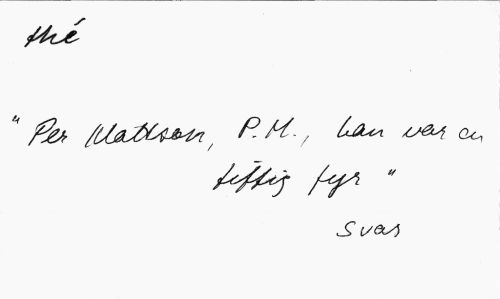 thé
"Per Mattson, P.M., han var en
fiffig fyr"
Svar